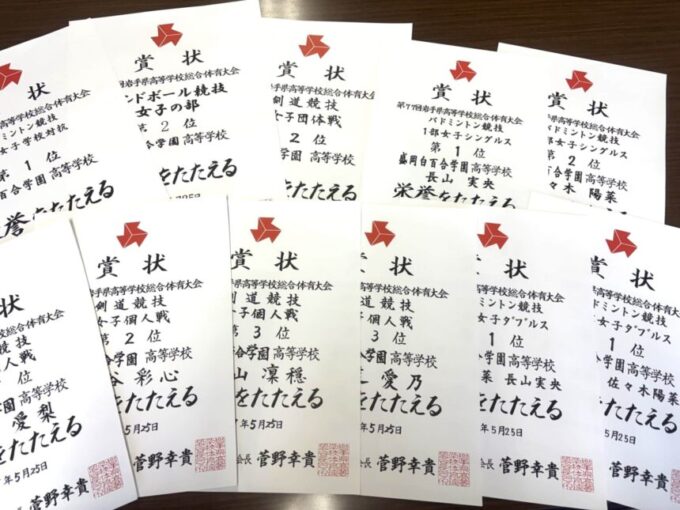 賞状
高等学校総合体育大会
ミントン競技
女子学校対抗
第1位
百合学園高等学校
栄誉をたたえる
賞状
岩手県高等学校総合体育大会
ンドボール競技
女子の部
第2位
合学園高等学校
をたたえる
賞状
岩手県高等学校総合体育大会
剣道競技
女子団体戦
2位
学園高等学校
をたたえる
賞状
第77回岩手県高等学校総合体育大会
バドミントン競技
1部女子シングルス
第1位
盛岡白百合学園高等学校
長山実央
栄誉をたたえる
賞状
岩手県高等学校総合体育大会
バドミントン競技
女子シングルス
第2位
百合学園高等学校
々木陽菜
をたたえる
状
学校総合体育大会
競技
人戦
位
園高等学校
愛梨
をたたえる
年5月25日
長 菅野幸貴
賞状
県高等学校総合体育大会
剣道競技
女子個人戦
第2位
合学園高等学校
谷彩心
をたたえる
年5月25日
会長 菅野幸貴
賞状
県高等学校総合体育大会
剣道競技
女子個人戦
第3位
合学園高等学校
山凜穏
をたたえる
年5月25日
会長 菅野幸貴
賞状
県高等学校総合体育大会
道競技
子個人戦
3位
学園高等学校
愛乃
をたたえる
年5月25日
会長 菅野幸貴
賞状
県高等学校総合体育大会
ミントン競技
女子ダブルス
1位
学園高等学校
菜 長山実央
をたたえる
年5月25日
会長 菅野幸貴
賞状
県高等学校総合体育大会
ドミントン競技
女子ダブルス
1位
学園高等学校
佐々木陽菜
をたたえる
5月25日
長 菅野幸貴